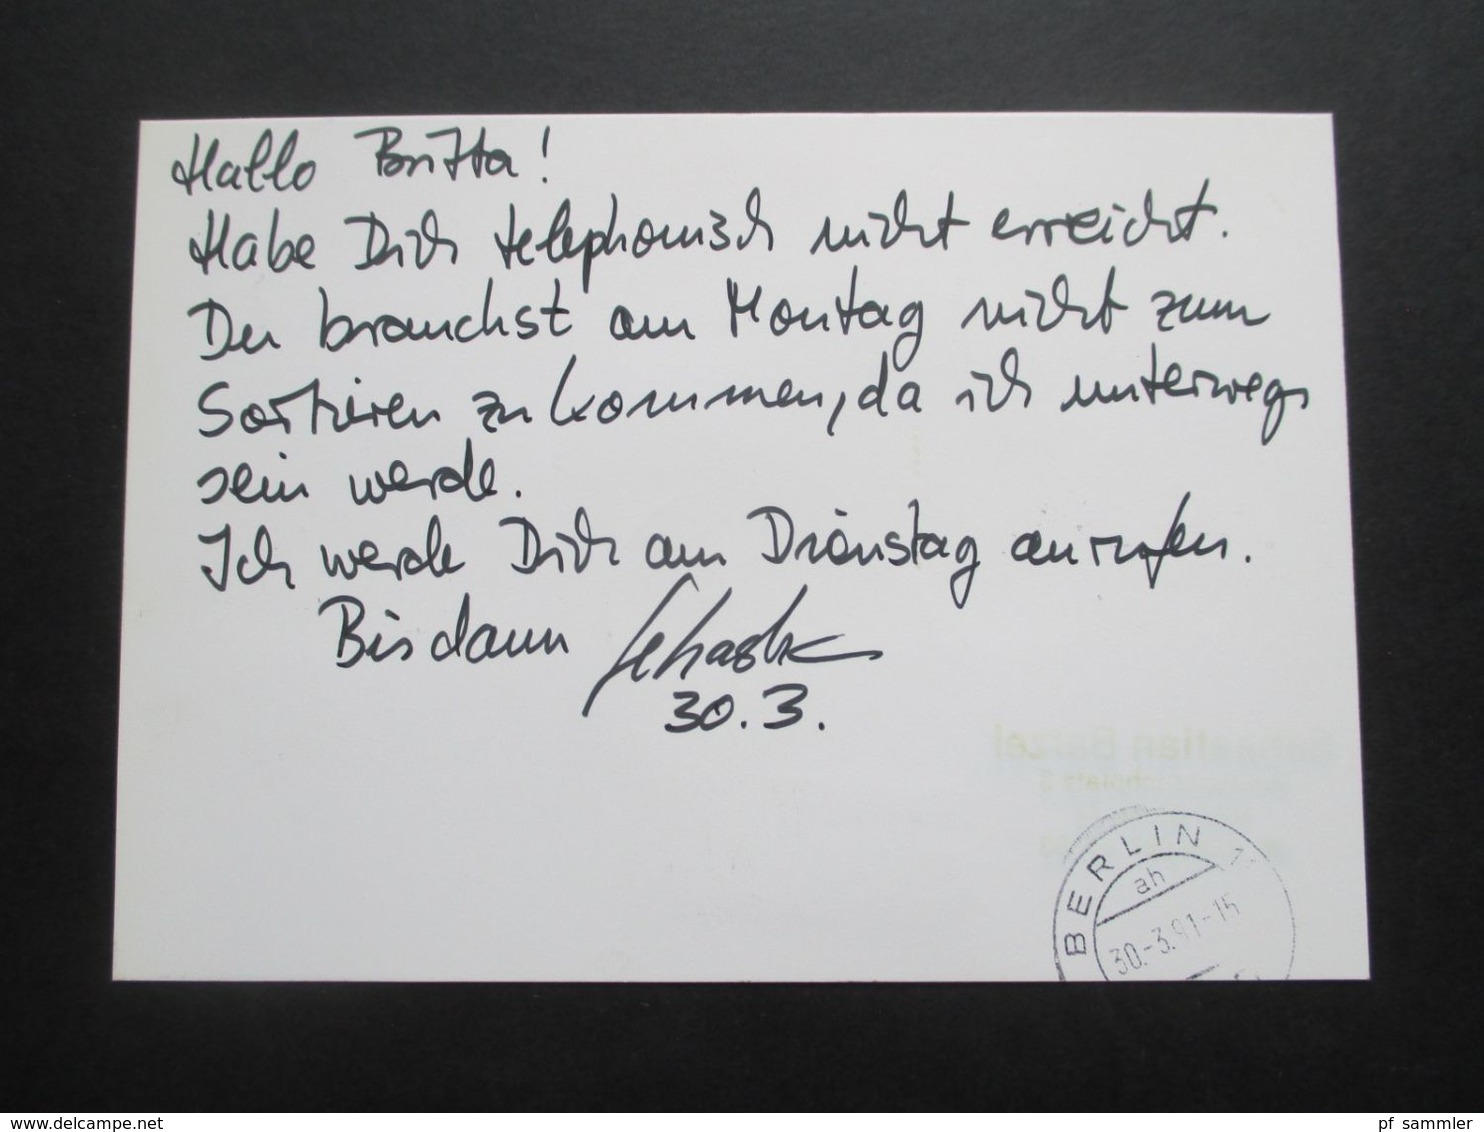 Hallo Britta!
Habe Dich telephonisch nicht erreicht.
Du brauchst am Montag nicht zum
Sortieren zu kommen, da ich unterwegs
sein werde.
Ich werde Dich am Dienstag anrufen.
Bis dann
30.3.
BERLIN 1
ah
30.-3.91-15
www.delcampe.net
pf_sammler